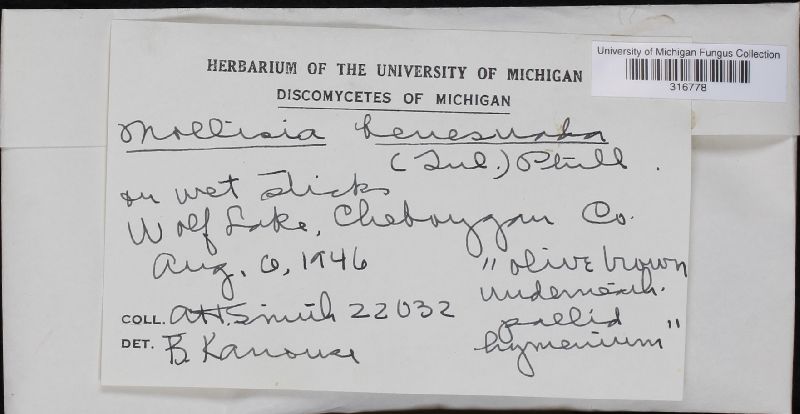 University of Michigan Fungus Collection
316778
HERBARIUM OF THE UNIVERSITY OF MICHIGAN
DISCOMYCETES OF MICHIGAN
Mollisia benesuada
(Tul.) Phill.
on wet sticks
Wolf Lake, Cheboygan Co.
Aug. 6, 1946
"olive brown
underneath.
pallid
hymenium"
COLL. AH Smith 22032
DET. B. Kanouse